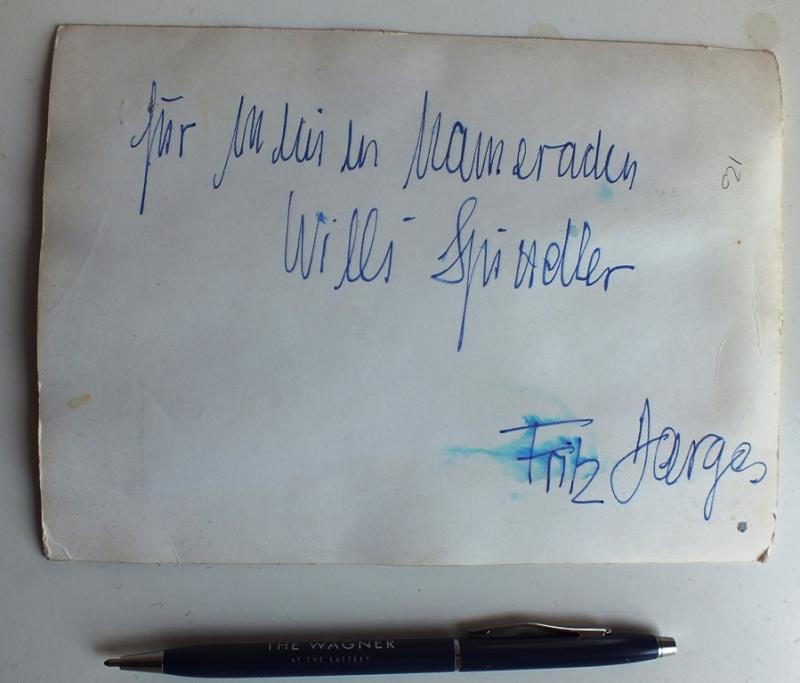 für Meinen Kameraden
Willi Spindler
Fritz Darges
21
THE WAGNER
AT THE BATTERY